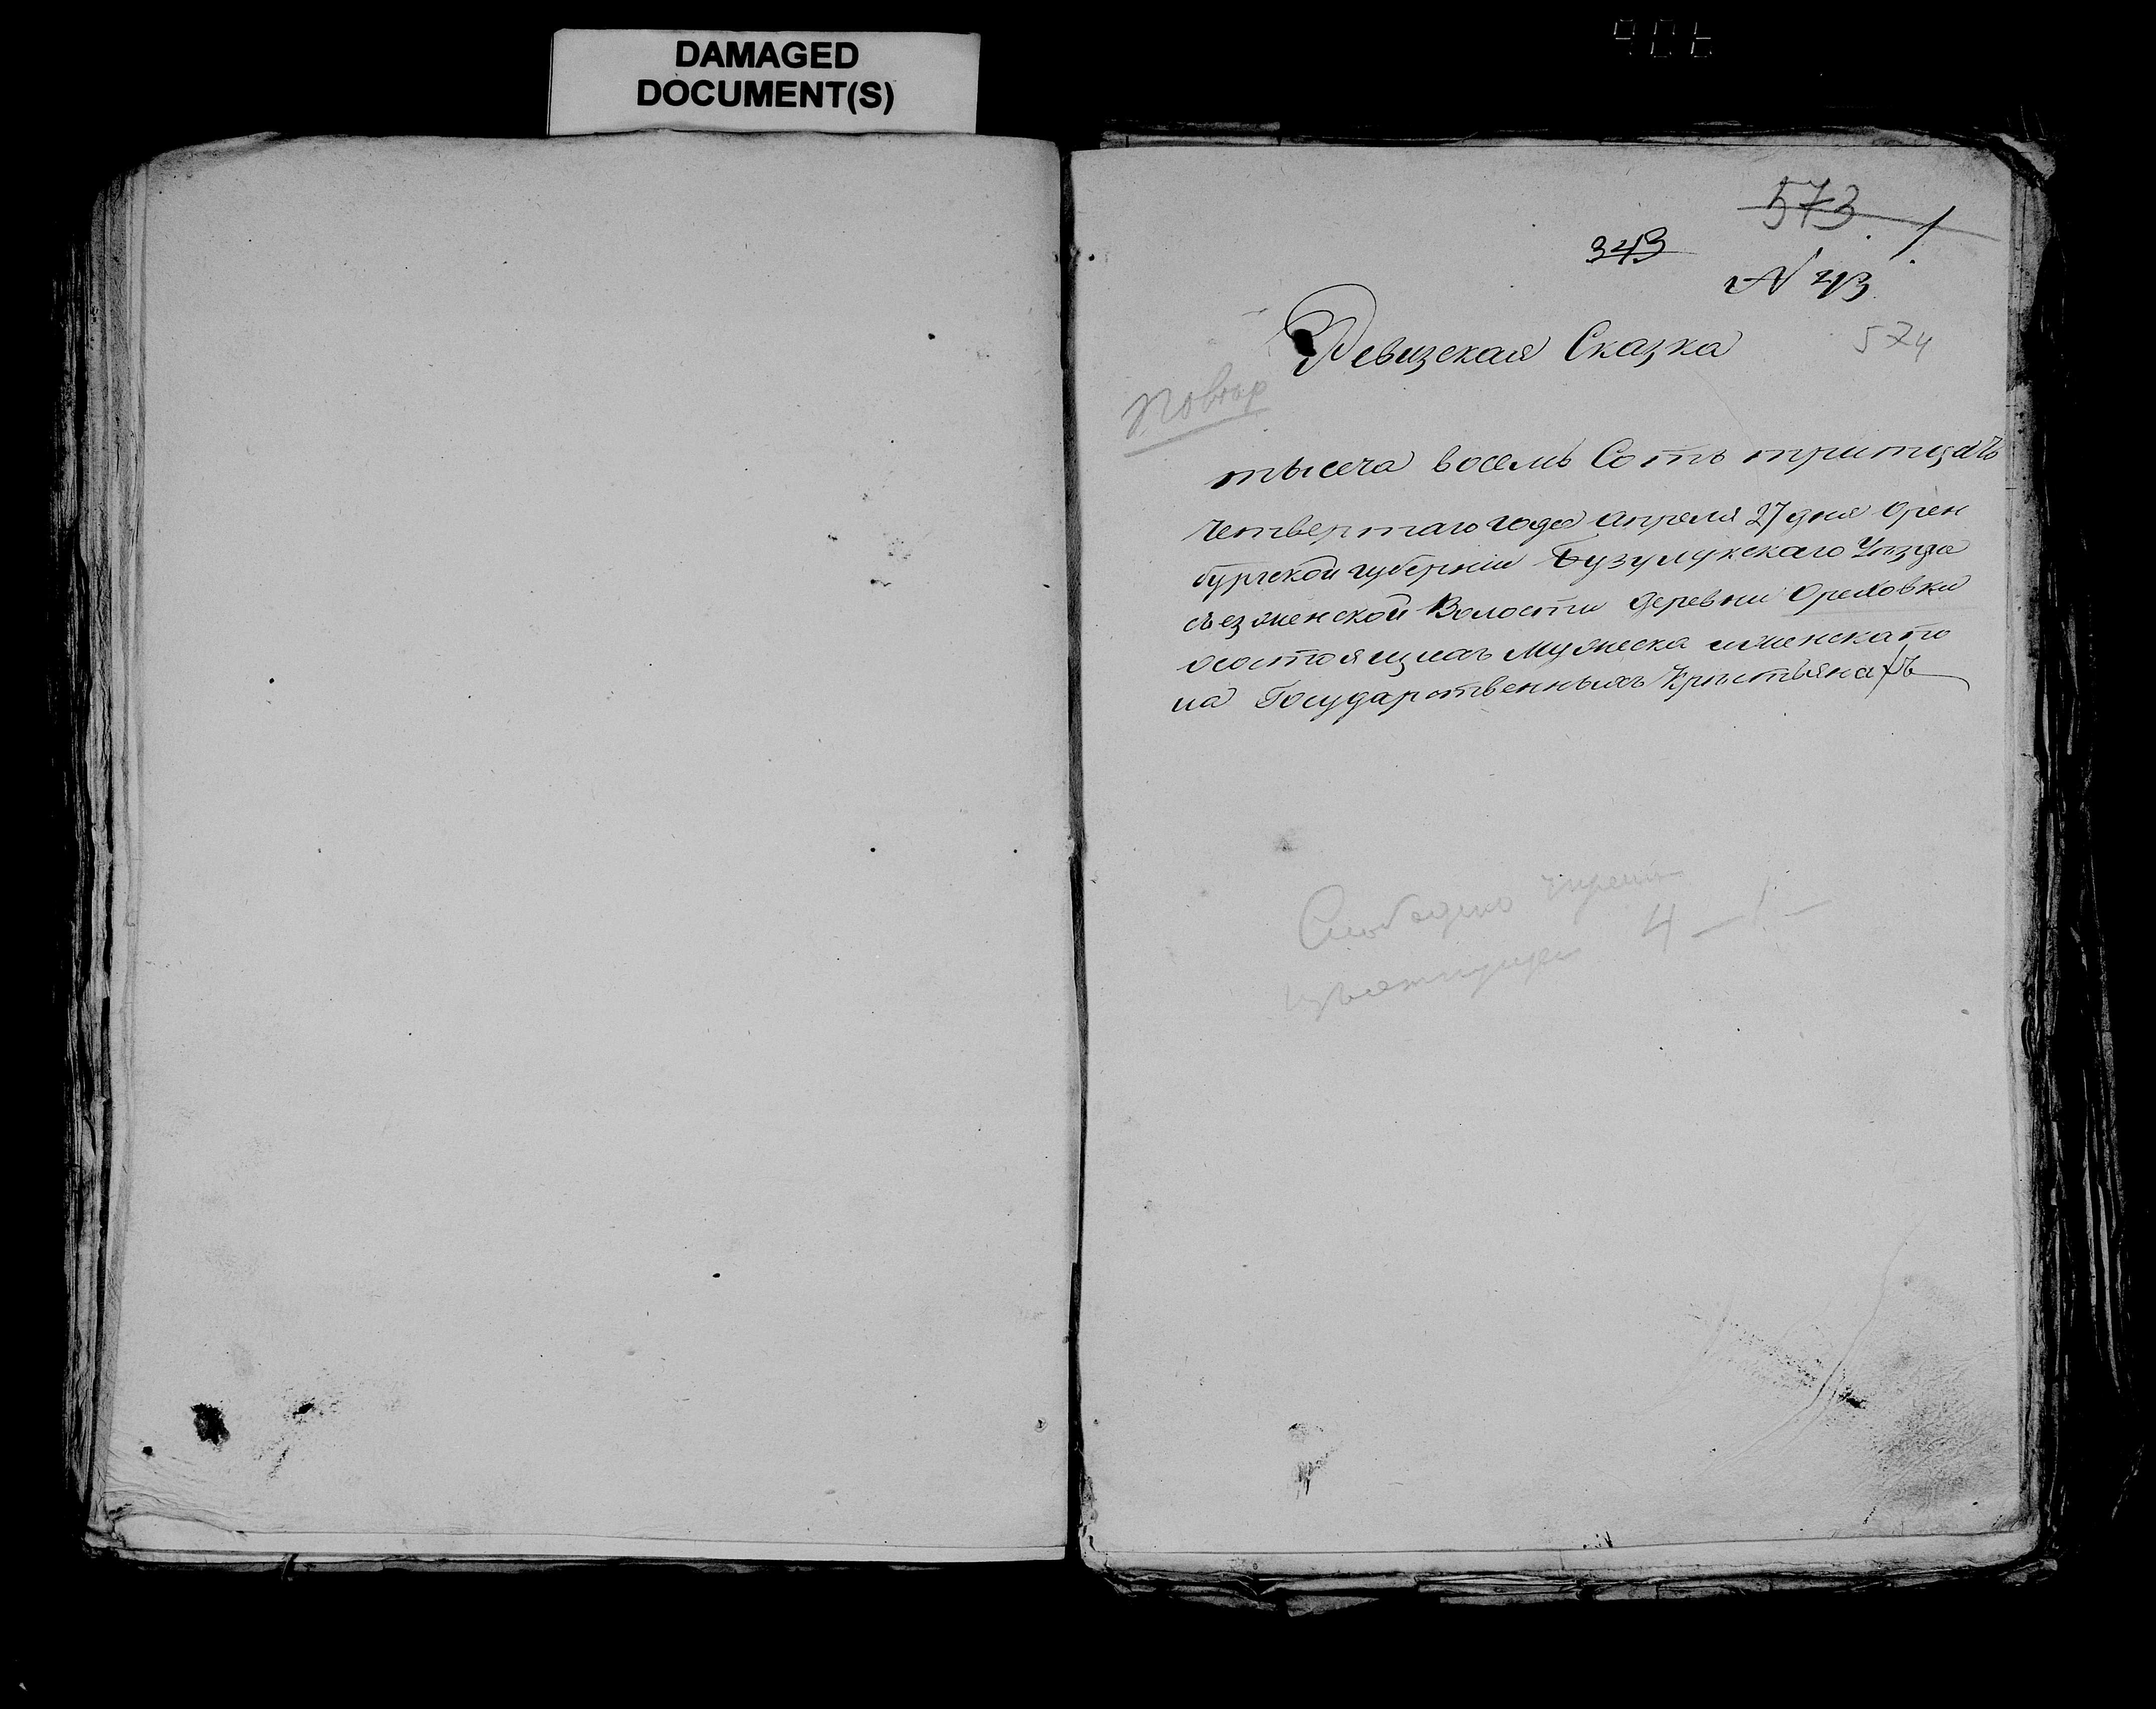 DAMAGED
DOCUMENT(S)
573
343
1
N 43
574
Ревизская Сказка
Повтор
тысеча восемь Сотъ тритцать
четвертаго года апреля 27 дня Орен
бургской губерніи Бузулукскаго Уѣзда
съезженской Волости деревни Ореховки
осостоящихъ мужеска иженскапо
ла Государственныхъ Крѣстьянахъ
4 – 1 –